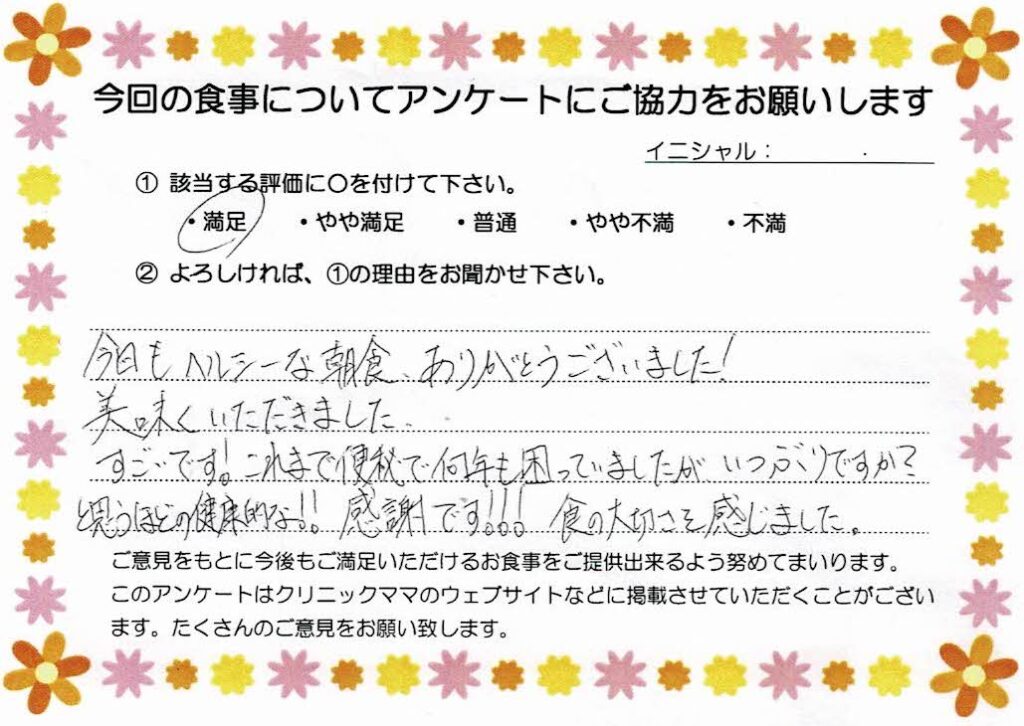 今回の食事についてアンケートにご協力をお願いします
イニシャル：
① 該当する評価に〇を付けて下さい。
・満足 ・やや満足 ・普通 ・やや不満 ・不満
② よろしければ、①の理由をお聞かせ下さい。
今日もヘルシーな朝食、ありがとうございました!
美味しくいただきました.
すごいです!これまで便秘で何年も困っていましたが、いつぶりですか?
と思うほどの健康的な!! 感謝です!!! 食の大切さを感じました。
ご意見をもとに今後もご満足いただけるお食事をご提供出来るよう努めてまいります。
このアンケートはクリニックママのウェブサイトなどに掲載させていただくことがござい
ます。たくさんのご意見をお願い致します。